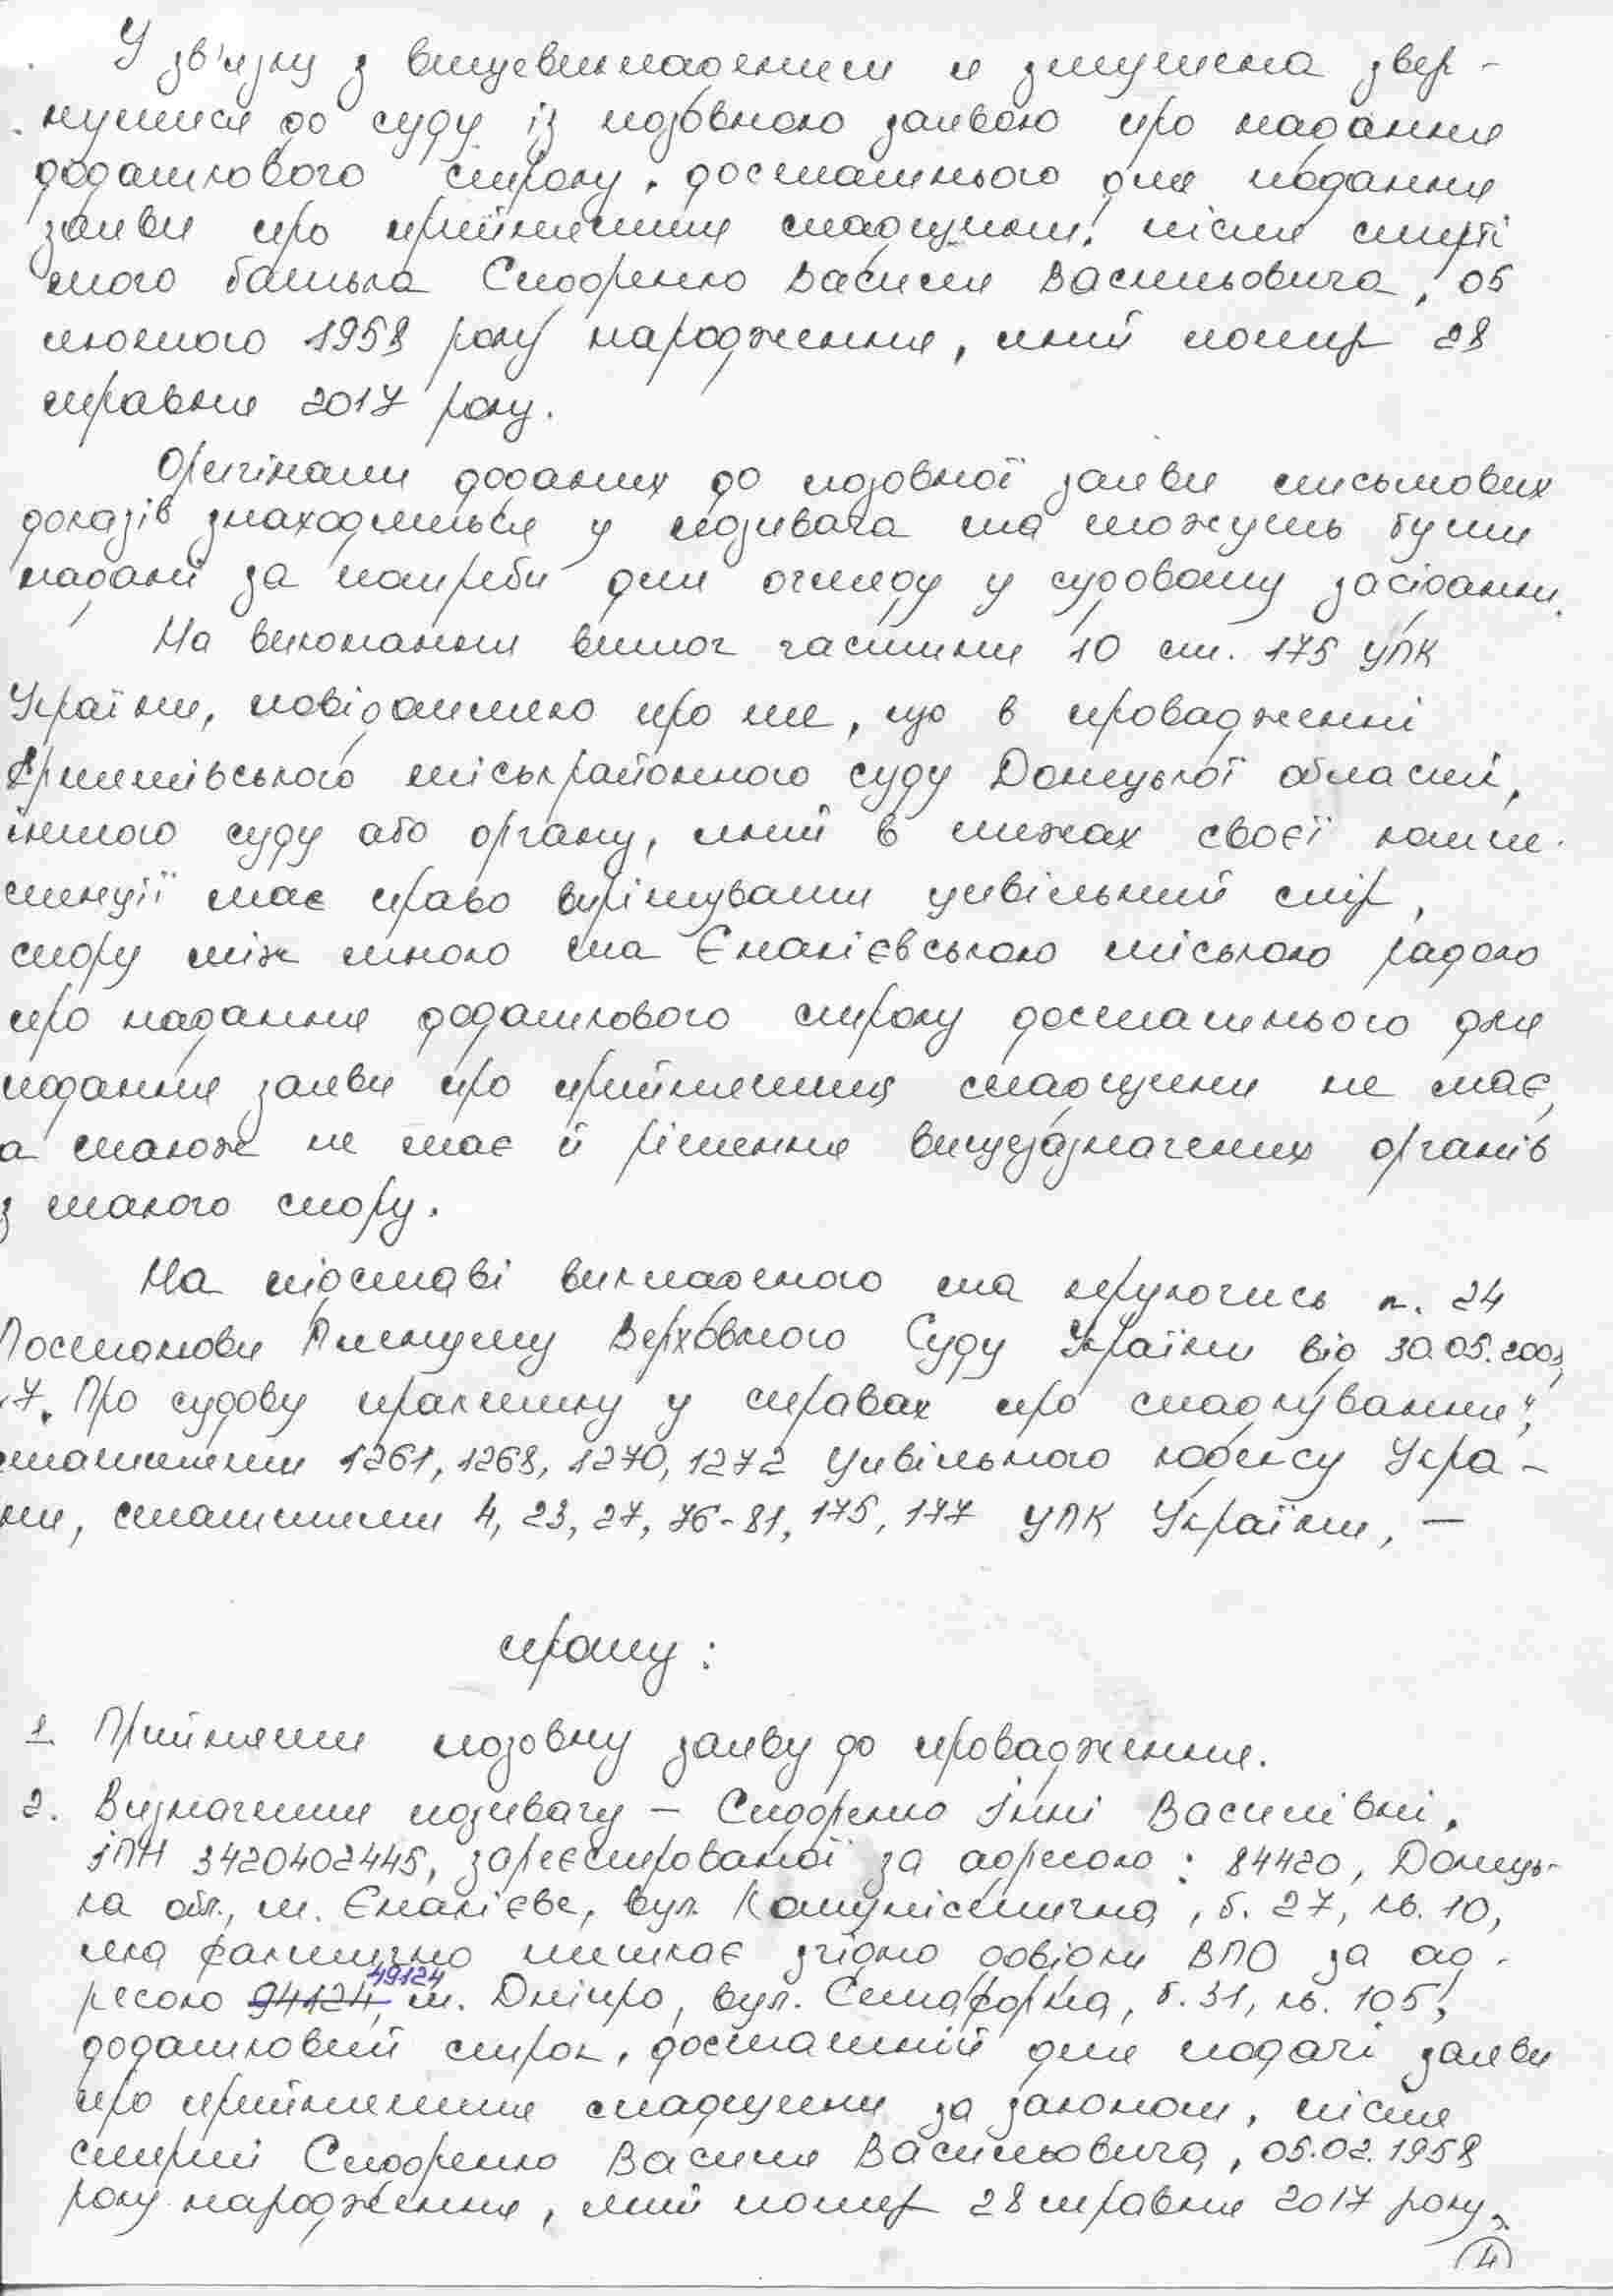 У зв'язку з вищевикладеним я змушена звер-
нутися до суду із позовною заявою про надання
додаткового строку, достатнього для подання
заяви про прийняття спадщини, після смерті
мого батька Сидоренко Василя Васильовича, 05
лютого 1958 року народження, який помер 28
травня 2017 року.
Оригінали доданих до позовної заяви письмових
доказів знаходяться у позивача та можуть бути
надані за потреби для огляду у судовому засіданні.
На виконання вимог частини 10 ст. 175 ЦПК
України, повідомляю про те, що в провадженні
міськрайонного суду Донецької області,
іншого суду або органу, який в межах своєї компе-
тенції має право вирішувати цивільний спір,
спору між мною та Єнакієвською міською радою
про надання додаткового строку достатнього для
подання заяви про прийняття спадщини не має,
а також не має й рішення вищезазначених органів
з такого спору.
На підставі викладеного та керуючись п. 24
Постанови Пленуму Верховного Суду України від 30.05.2008
7 "Про судову практику у справах про спадкування",
статтями 1261, 1268, 1270, 1272 Цивільного кодексу Укра-
ни, статтями 4, 23, 27, 76-81, 175, 177 ЦПК України, —
прошу:
1. Прийняти позовну заяву до провадження.
2. Визначити позивачу – Сидоренко Інні Василівні,
ІПН 3420402445, зареєстрованої за адресою: 84420, Донець-
ка обл., м. Єнакієве, вул. Комуністична, б. 27, кв. 10,
яка фактично мешкає згідно довідки ВПО за ад-
ресою 94124, 49124 м. Дніпро, вул. Семафорна, б. 31, кв. 105,
додатковий строк, достатній для подачі заяви
про прийняття спадщини за законом, після
смерті Сидоренко Василя Васильовича, 05.02.1958
року народження, який помер 28 травня 2017 року.
4